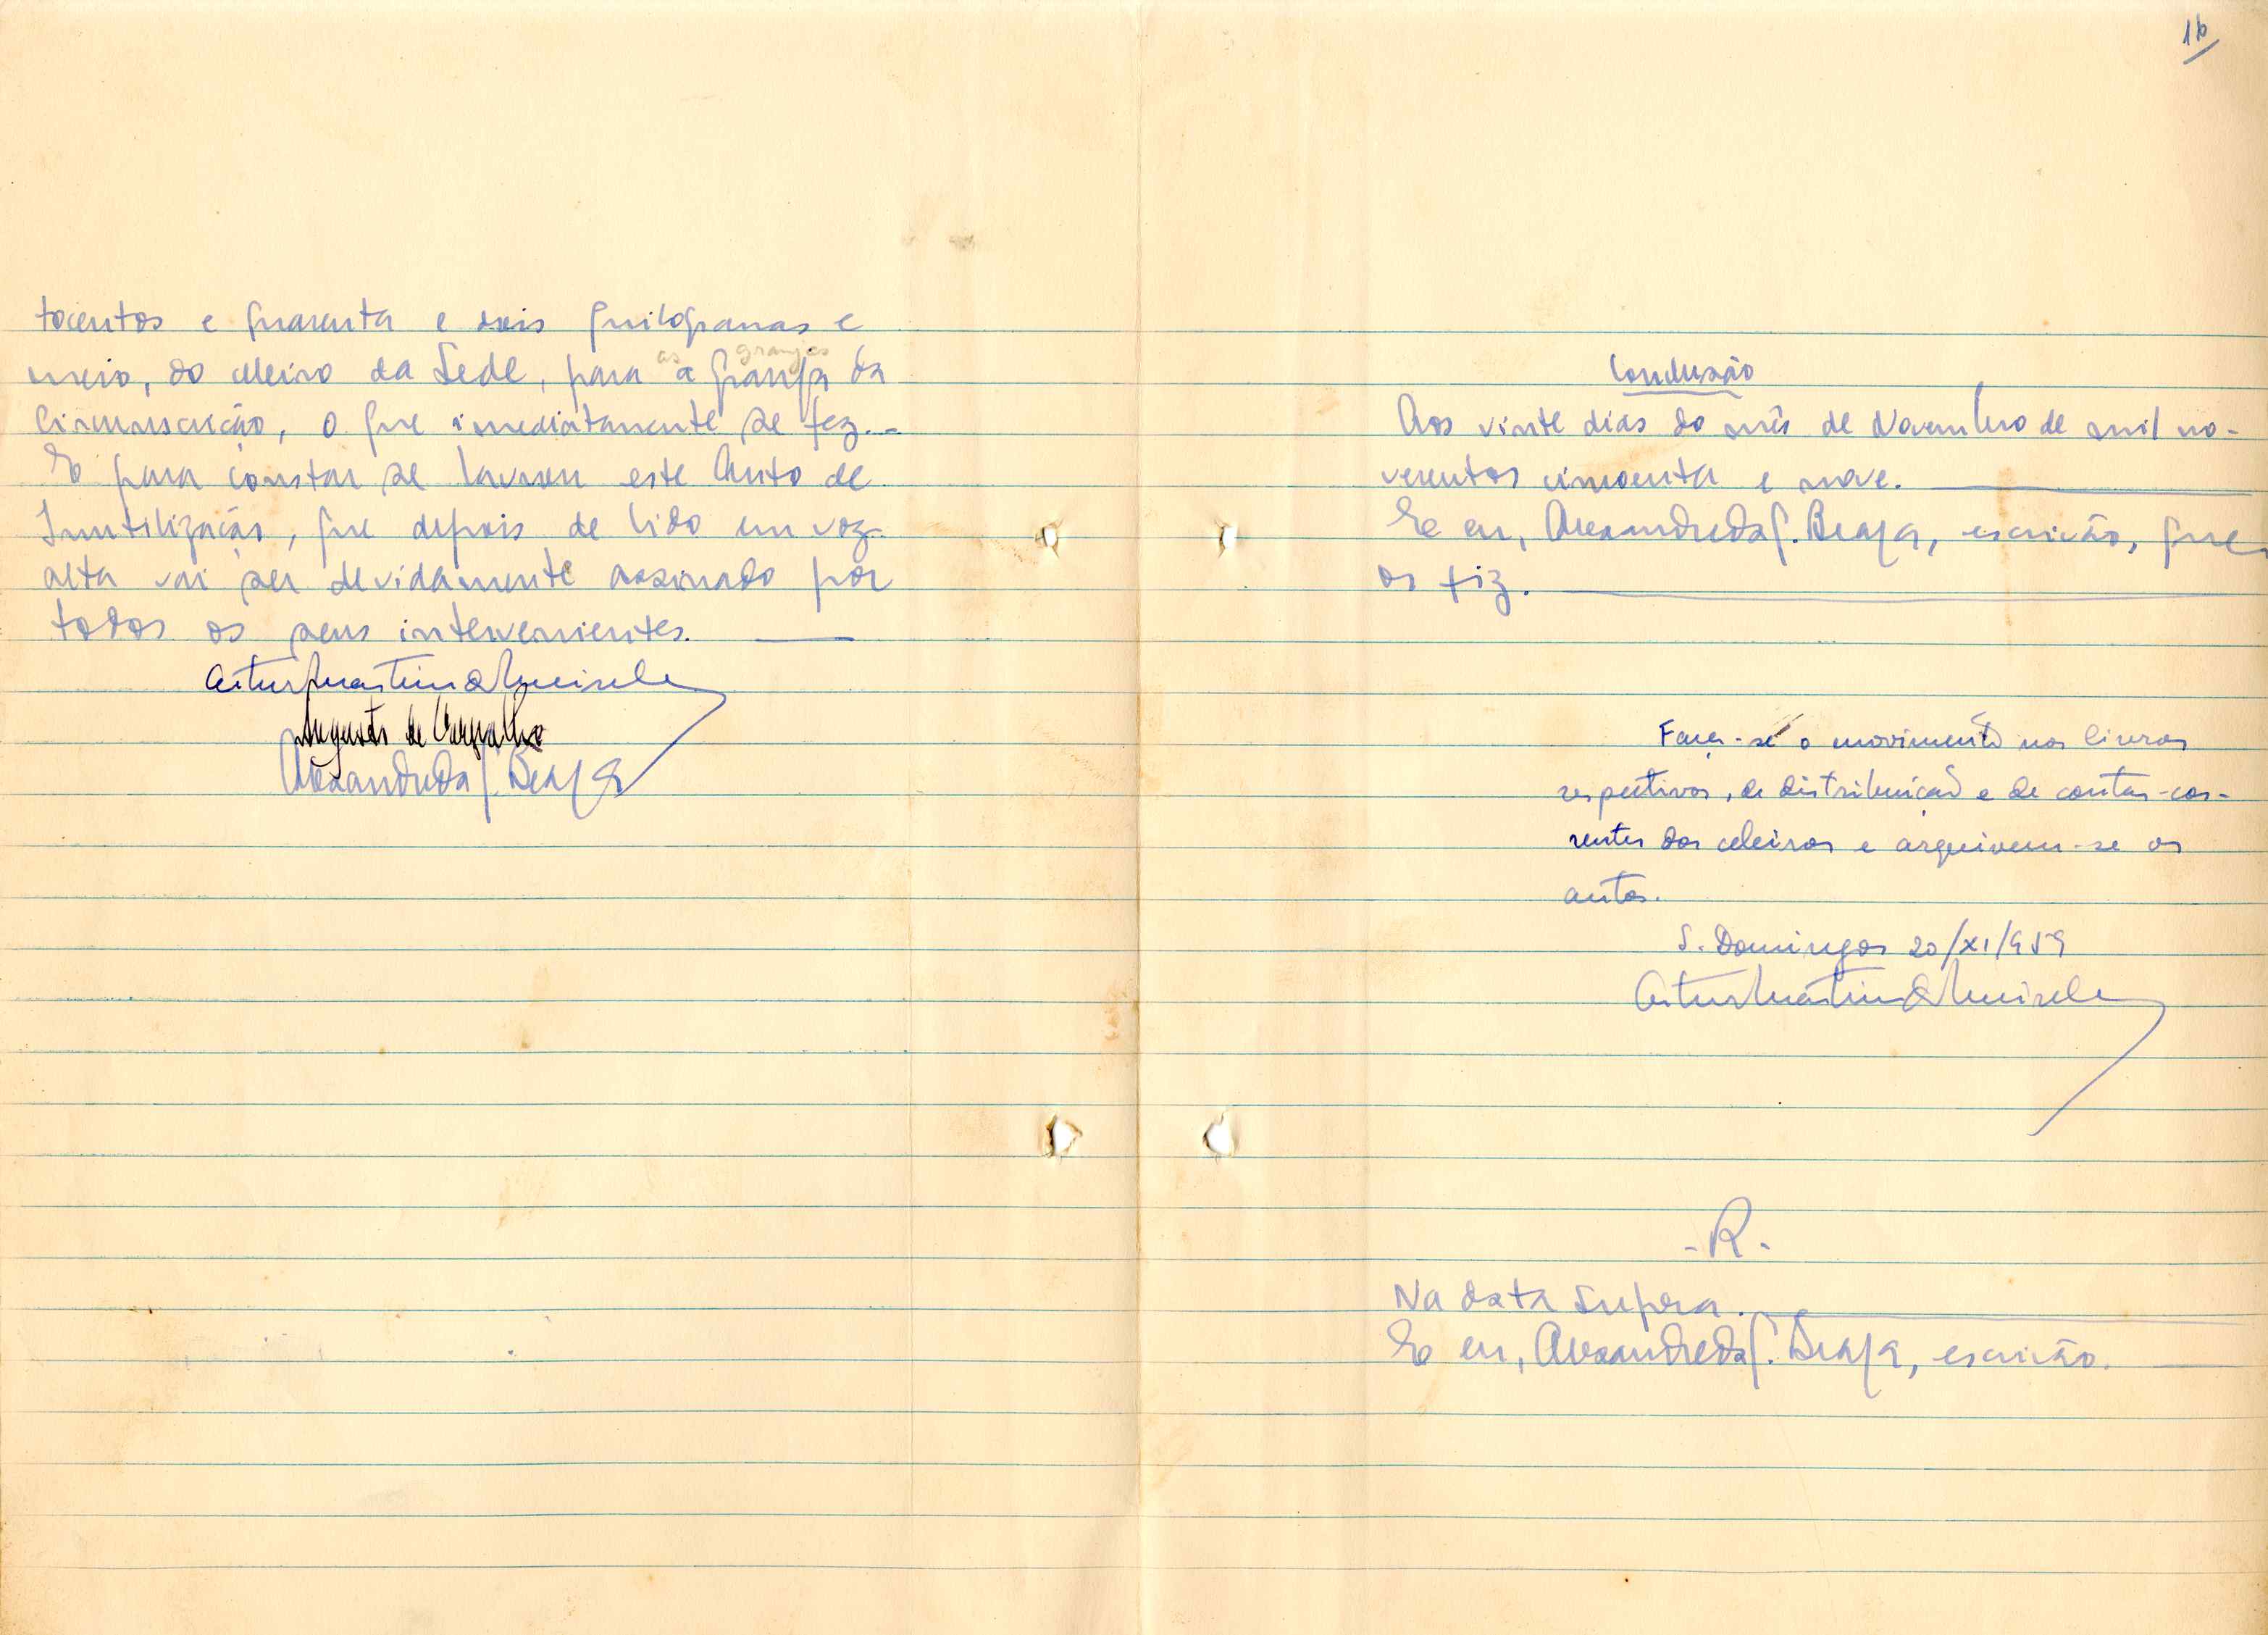 tocentos e quarenta e dois quilogramas e
as granjas
meio, do celeiro da Sede, para a granja da
Circunscrição, o que imediatamente se fez.-
E para constar se lavrou este Auto de
Inutilização, que depois de lido em voz
alta vai ser devidamente assinado por
todos os seus intervenientes.
Artur Martins de Meireles
Augusto de Carvalho
Alexandre da G. Braga
16
Conclusão
Aos vinte dias do mês de Novembro de mil no-
vecentos cincoenta e nove.
E eu, Alexandre da G. Braga, escrivão, que
os fiz.
Faça-se o movimento nos livros
respectivos, de distribuição e de contas-cor-
rentes dos celeiros e arquivem-se os
autos.
S. Domingos 20/XI/959
Artur Martins de Meireles
-R-
Na data supra.
E eu, Alexandre da G. Braga, escrivão.